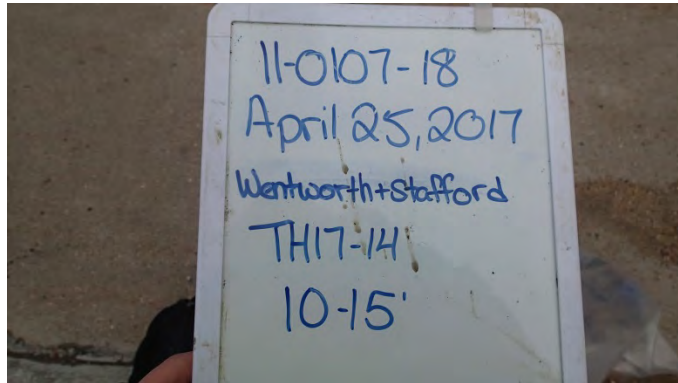 11-0107-18
April 25, 2017
Wentworth+Stafford
TH17-14
10-15'